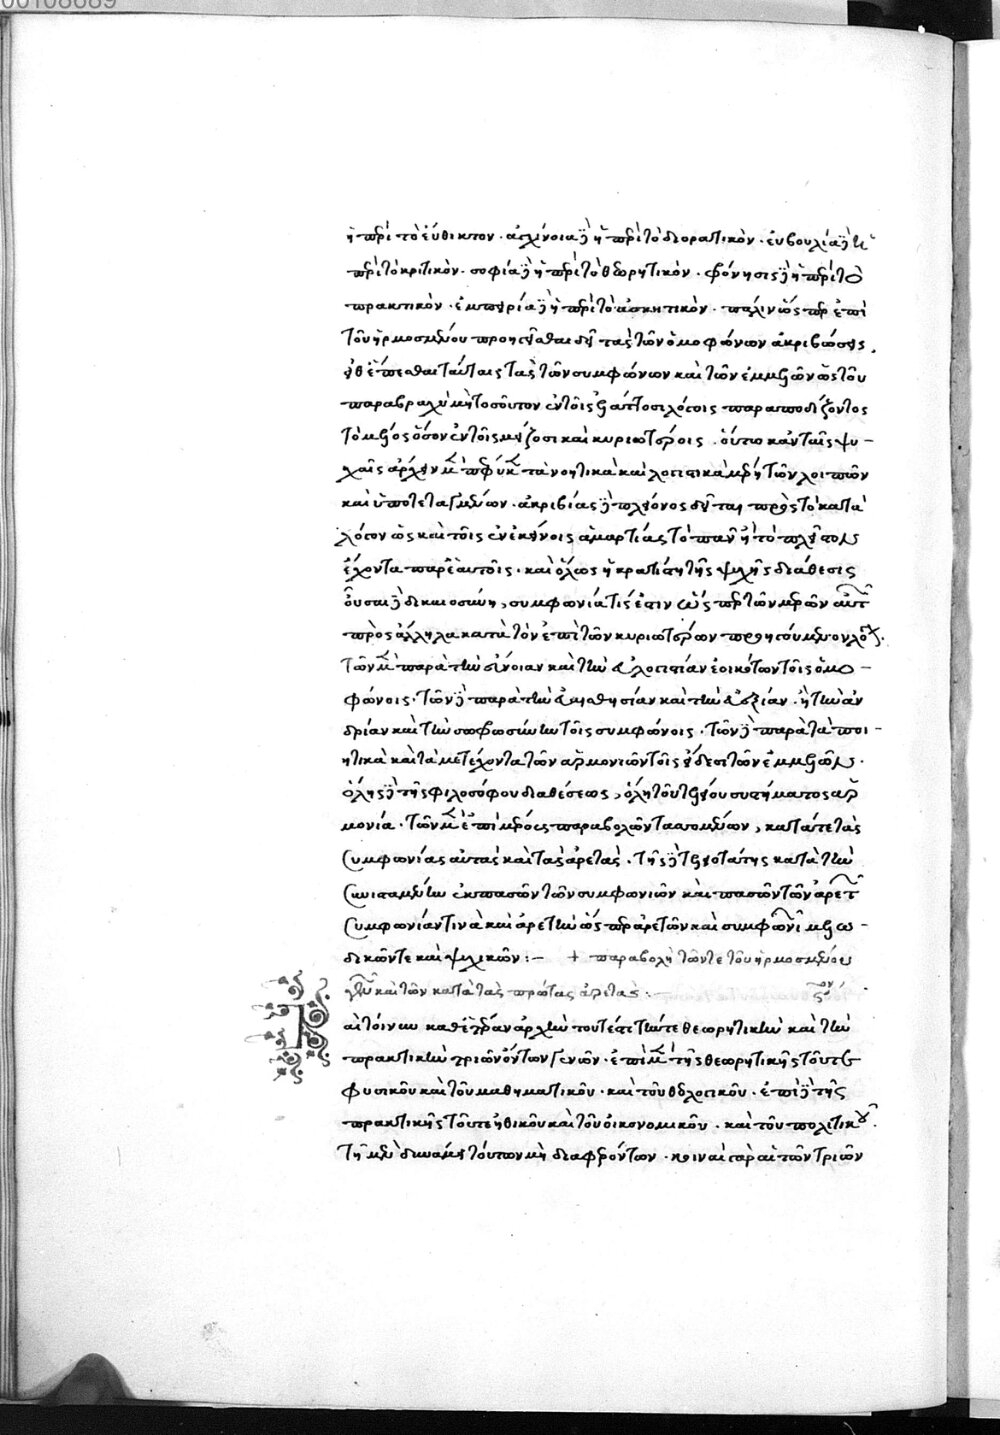 00108689
ἢ περὶ τὸ εὔθικτον· ἀγχίνοια δὲ ἡ περὶ τὸ διορατικὸν· εὐβουλία δὲ ἡ
περὶ τὸ κριτικὸν· σοφία δὲ ἡ περὶ τὸ θεωρητικὸν· φρόνησις δὲ ἡ περὶ τὸ
πρακτικὸν· ἐμπειρία δὲ ἡ περὶ τὸ ἀσκητικὸν· πάλιν ὥσπερ ἐπὶ
τοῦ ἡρμοσμένου προηγεῖσθαι δεῖ τὰς τῶν ὁμοφώνων ἀκριβώσεις,
ἕπεσθαι ταύταις τὰς τῶν συμφώνων καὶ τῶν ἐμμελῶν ὡς τοῦ
παραβραχὺ μὴ τοσοῦτον ἐν τοῖς ἐλάττοσι λόγοις παραποδίζοντος
τὸ μέλος ὅσον ἐν τοῖς μείζοσι καὶ κυριωτέροις· οὕτω κἀν ταῖς ψυ-
χαῖς ἄρχειν μὲν πέφυκε τὰ νοητικὰ καὶ λογιστικὰ μέρη τῶν λοιπῶν
καὶ ὑποτεταγμένων· ἀκριβείας δὲ πλείονος δεῖται πρὸς τὸ κατὰ
λόγον ὡς καὶ τοῖς ἐν ἐκείνοις ἁμαρτίας τὸ πᾶν ἢ τὸ πλεῖστον
ἔχοντα παρ' ἑαυτοῖς· καὶ ὅλως ἡ κρατίστη τῆς ψυχῆς διάθεσις
οὖσα δὲ δικαιοσύνη, συμφωνία τίς ἐστιν ὡς περ τῶν μερῶν αὐτῶν
πρὸς ἄλληλα κατὰ τὸν ἐπὶ τῶν κυριωτέρων προηγούμενον λόγον·
τῶν μὲν παρὰ τὴν εὔνοιαν καὶ τὴν εὐλογιστίαν ἐοικότων τοῖς ὁμο-
φώνοις· τῶν δὲ παρὰ τὴν εὐαισθησίαν καὶ τὴν εὐεξίαν· ἢ τὴν ἀν
δρίαν καὶ τὴν σωφροσύνην τοῖς συμφώνοις· τῶν δὲ παρὰ τὰ ποι-
ητικὰ καὶ τὰ μετέχοντα τῶν ἁρμονιῶν τοῖς εἴδεσι τῶν ἐμμελῶν·
ὅλης δὲ τῆς φιλοσόφου διαθέσεως, ὅλῃ τοῦ τελείου συστήματος ἁρ
μονίᾳ· τῶν μὲν ἐπὶ μέρους παραβολῶν τασσομένων, κατά τε τὰς
συμφωνίας αὐτὰς καὶ τὰς ἀρετὰς· τῆς δὲ τελειοτάτης κατὰ τὴν
συνισταμένην ἐκ πασῶν τῶν συμφωνιῶν καὶ πασῶν τῶν ἀρετῶν
συμφωνίαν τινὰ καὶ ἀρετὴν ὥσπερ ἀρετῶν καὶ συμφωνιῶν μελω-
δικῶν τε καὶ ψυχικῶν:– + παραβολὴ τῶν τε τοῦ ἡρμοσμένου
γενῶν καὶ τῶν κατὰ τὰς πρώτας ἀρετὰς:
Καὶ τοίνυν καθ' ἑτέραν ἀρχὴν τουτέστι τήν τε θεωρητικὴν καὶ τὴν
πρακτικὴν τριῶν ὄντων γενῶν· ἐπὶ μὲν τῆς θεωρητικῆς τοῦ τε
φυσικοῦ καὶ τοῦ μαθηματικοῦ· καὶ τοῦ θεολογικοῦ· ἐπὶ δὲ τῆς
πρακτικῆς τοῦ τε ἠθικοῦ καὶ τοῦ οἰκονομικοῦ· καὶ τοῦ πολιτικοῦ·
τῇ μὲν δυνάμει τούτων μὴ διαφερόντων· κοιναὶ γὰρ αἱ τῶν τριῶν